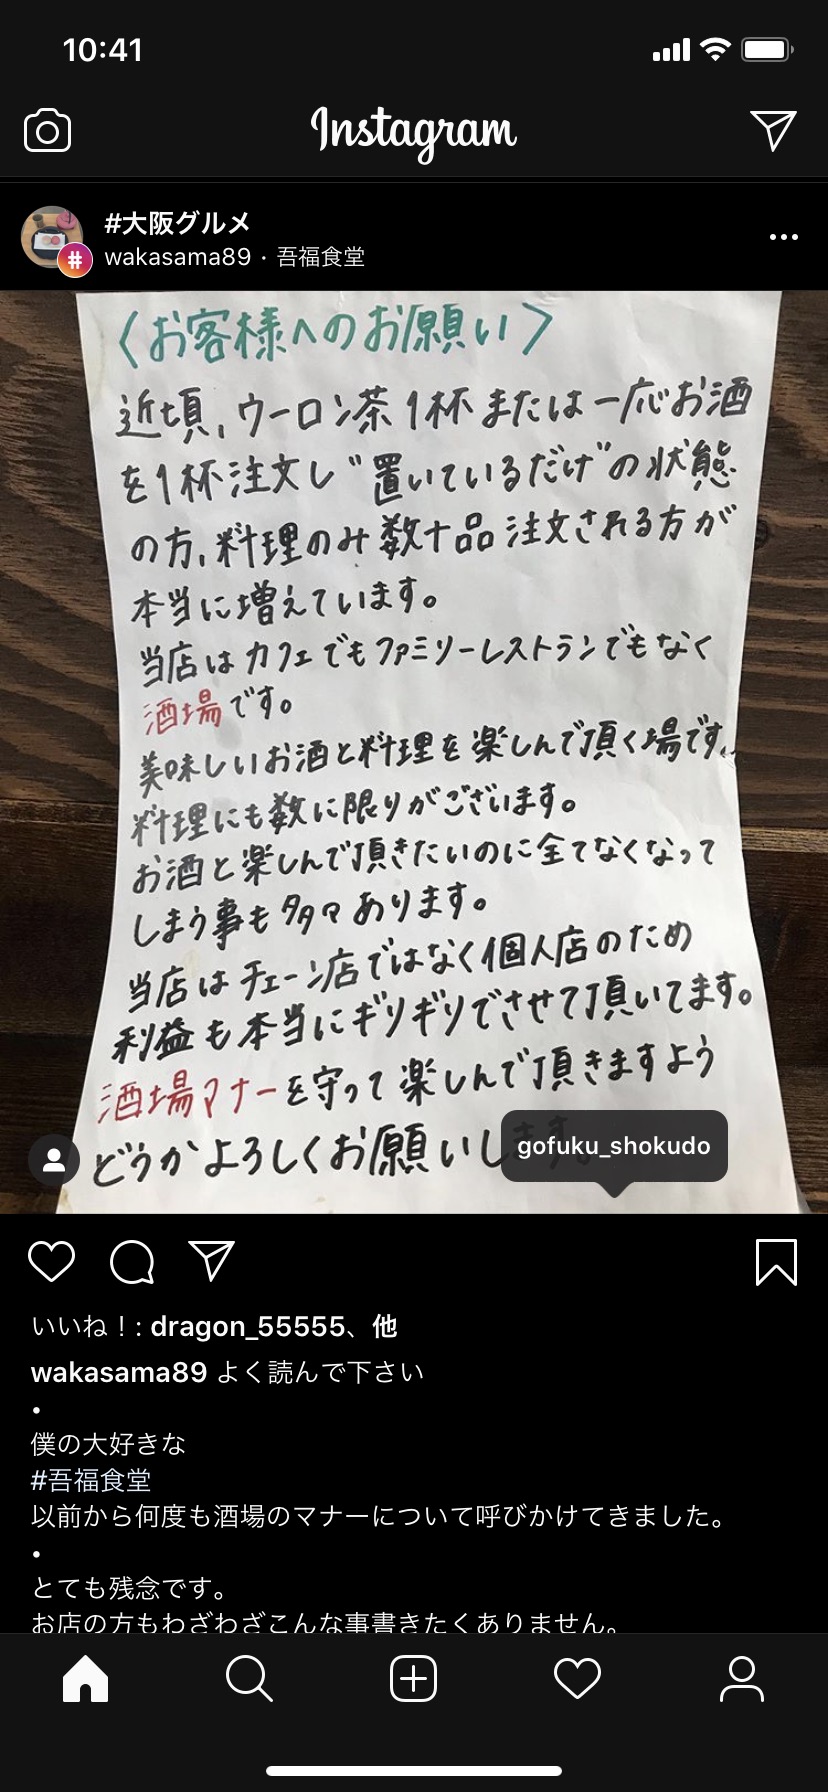 10:41
Instagram
#大阪グルメ
wakasama89・吾福食堂
〈お客様へのお願い〉
近頃、ウーロン茶1杯または一応お酒
を1杯注文し“置いているだけ”の状態
の方、料理のみ数十品注文される方が
本当に増えています。
当店はカフェでもファミリーレストランでもなく
酒場です。
美味しいお酒と料理を楽しんで頂く場です。
料理にも数に限りがございます。
お酒と楽しんで頂きたいのに全てなくなって
しまう事も多々あります。
当店はチェーン店ではなく個人店のため
利益も本当にギリギリでさせて頂いてます。
酒場マナーを守って楽しんで頂きますよう
どうかよろしくお願いします。
gofuku_shokudo
いいね！: dragon_55555、他
wakasama89 よく読んで下さい
•
僕の大好きな
#吾福食堂
以前から何度も酒場のマナーについて呼びかけてきました。
•
とても残念です。
お店の方もわざわざこんな事書きたくありません。